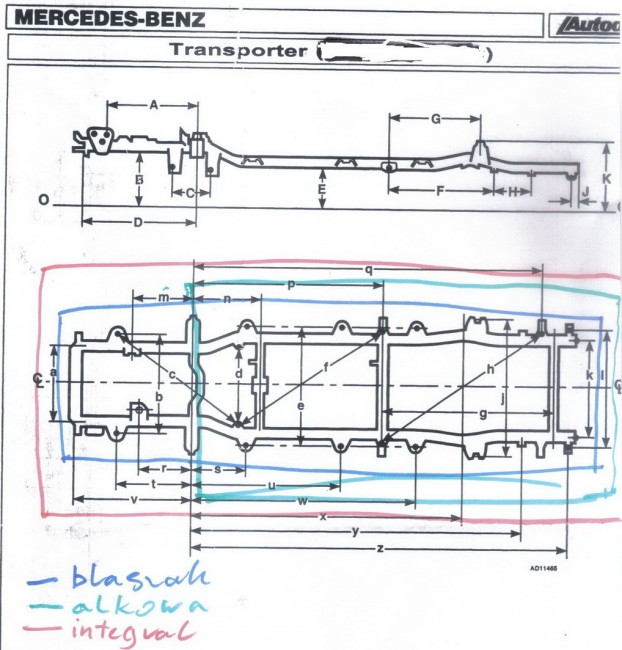 MERCEDES-BENZ
Transporter (
)
A
G
B
C
D
E
F
H
J
K
O
q
p
m
n
a
b
c
d
e
f
g
h
j
k
l
r
s
t
u
v
w
x
y
z
AD11465
— blaszak
— alkowa
— integral